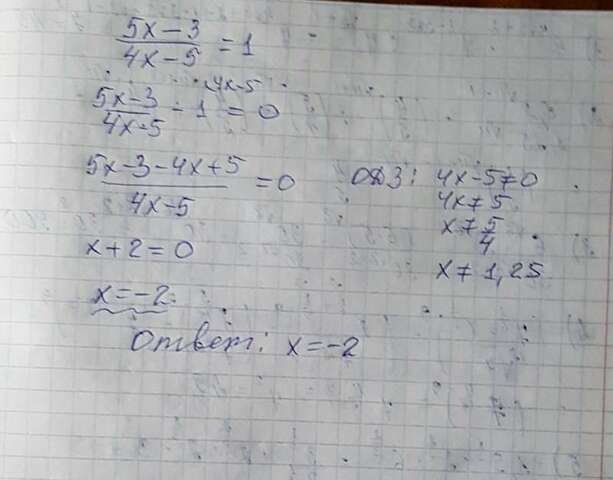 5x-3/4x-5 = 1
5x-3/4x-5 - 1 \4x-5 = 0
5x-3-4x+5/4x-5 = 0
x+2=0
x=-2
ОДЗ: 4x-5≠0
4x≠5
x≠5/4
x≠1,25
Ответ: x=-2